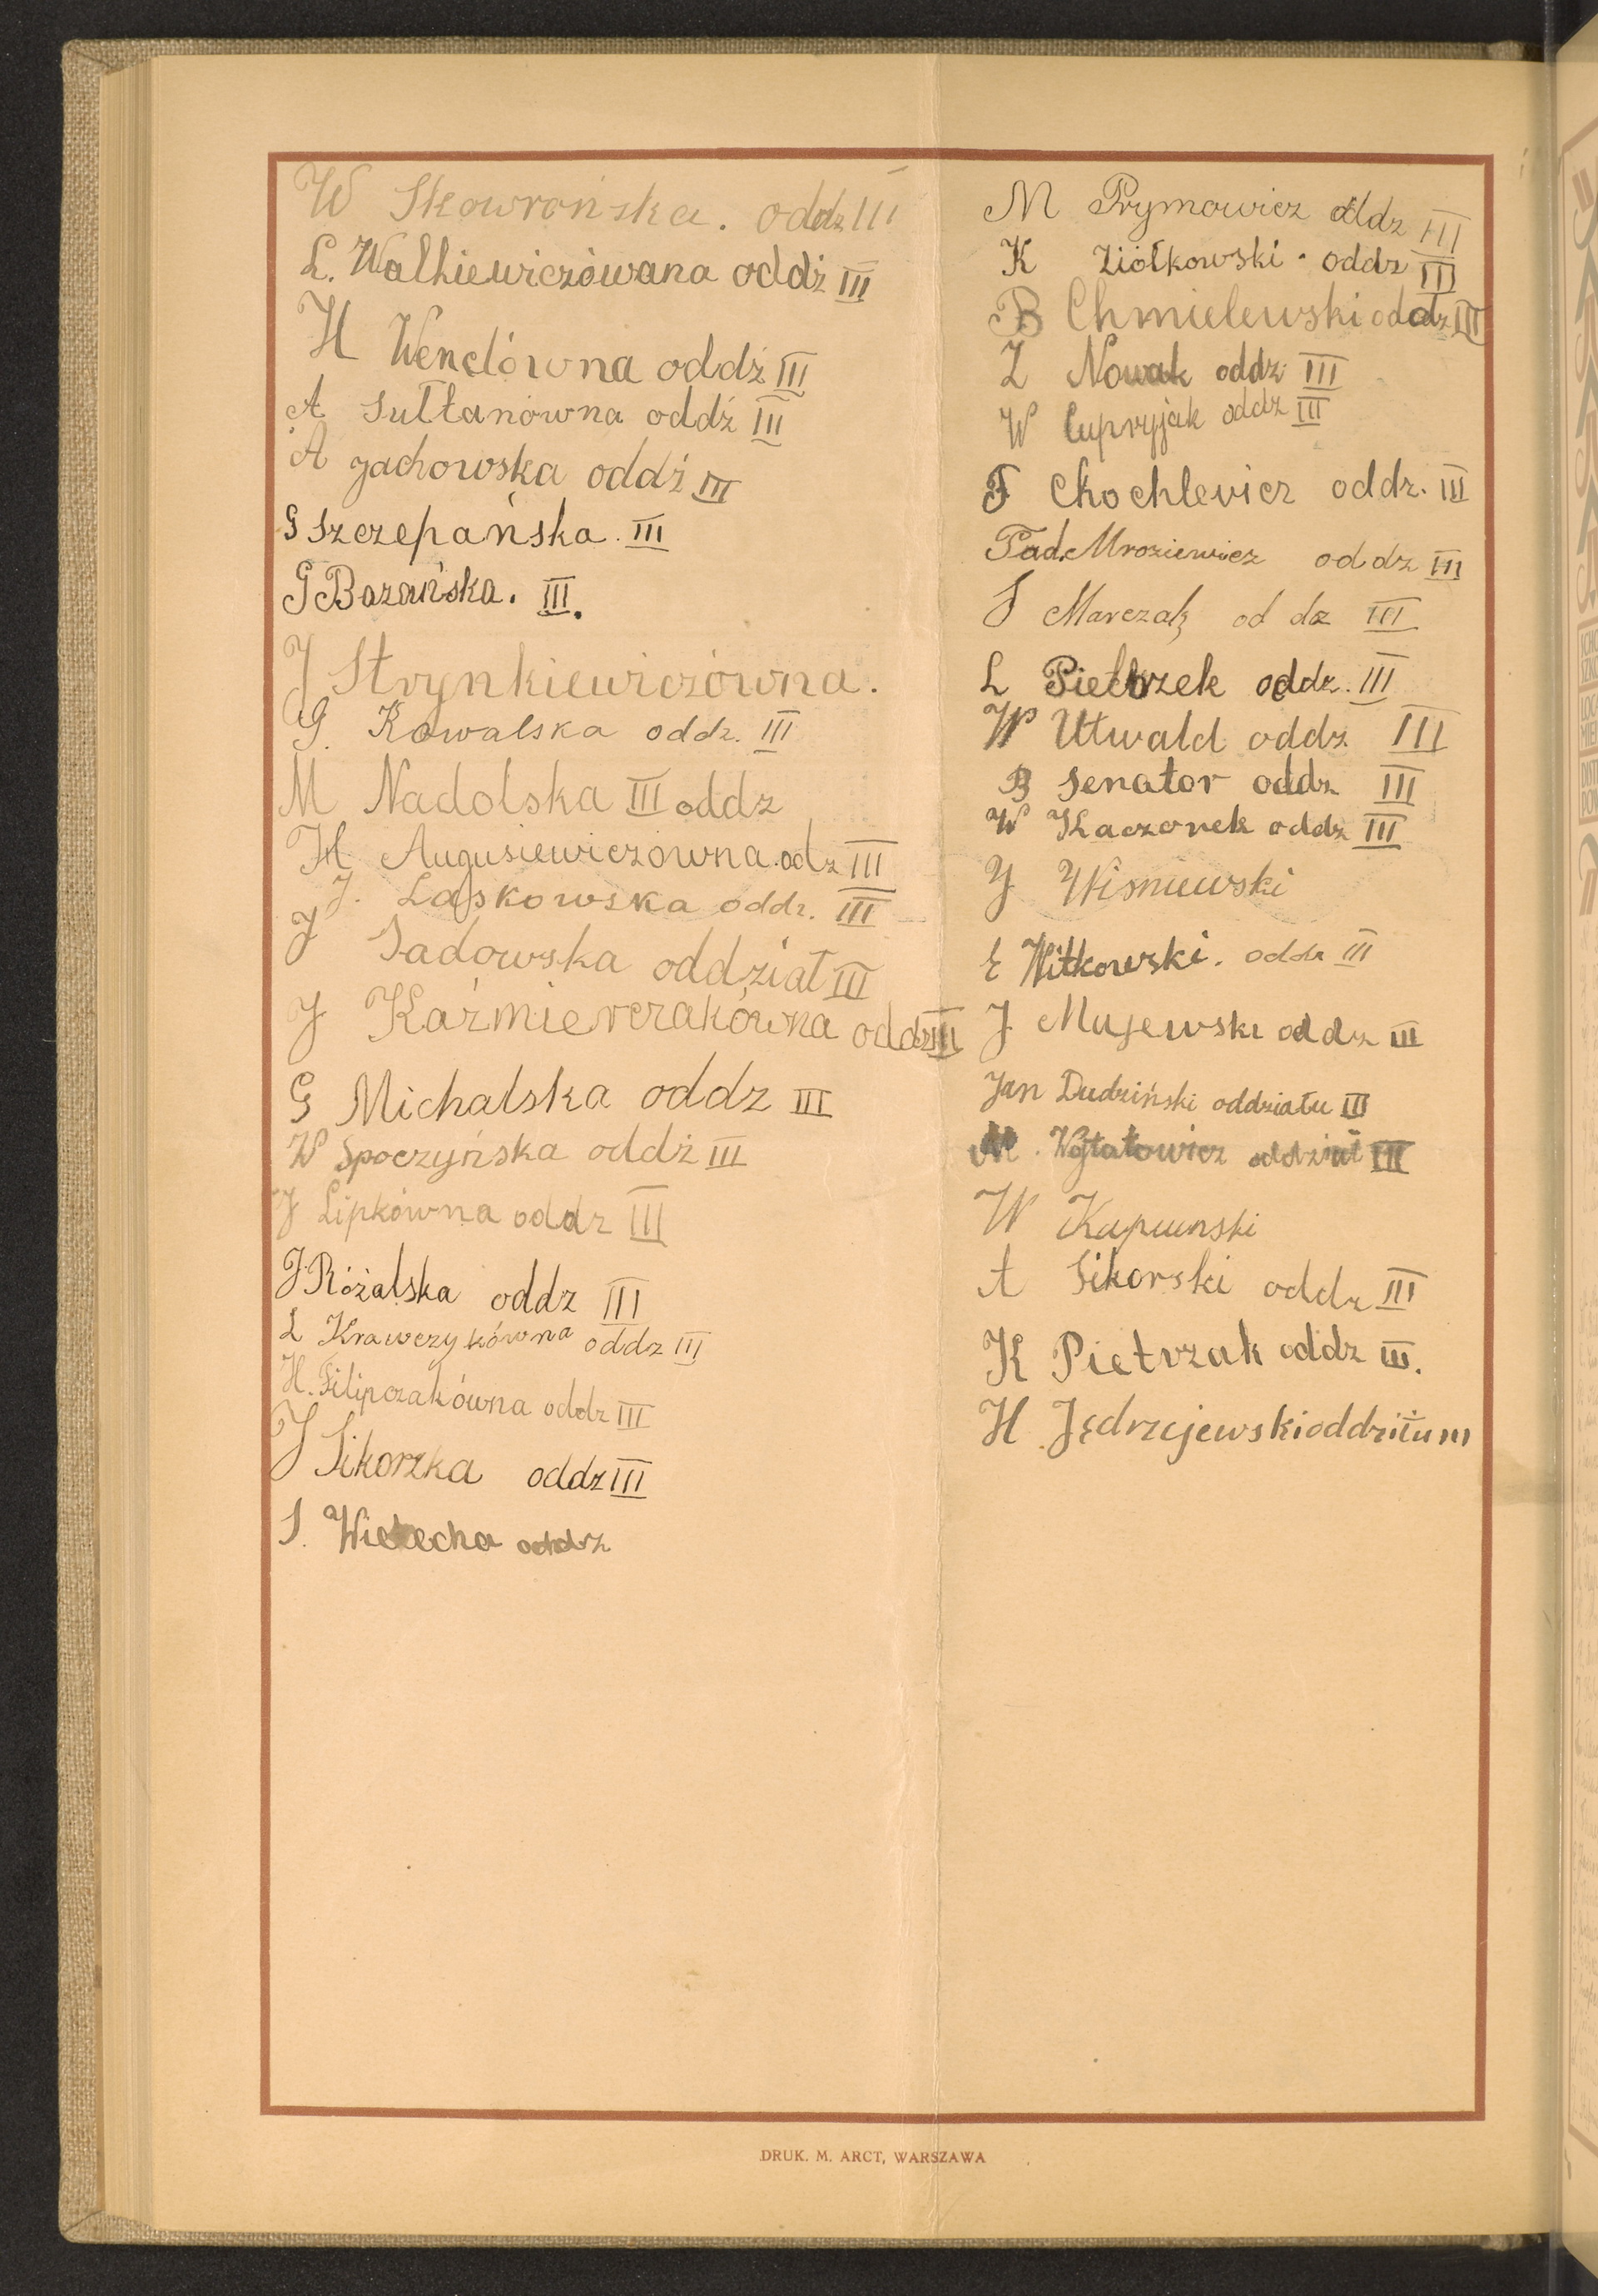 W Skowrońska. oddz III
L. Walkiewiczówana oddź III
H Wendówna oddź III
A Sułtanówna oddź III
A Jachowska oddź III
G Szczepańska. III
G Bazańska. III.
J Strynkiewiczówna.
G. Kowalska oddz. III
M Nadolska III oddz
H Augusiewiczowna. odz III
J. Laskowska oddz. III
J Sadowska oddział III
J Kaźmierczakówna oddz III
G Michalska oddz III
W Spoczyńska oddź III
J Lipkówna oddz III
J. Różalska oddz III
L Krawczykówna oddz III
H. Filipczakówna oddz III
J Sikorzka oddz III
S. Wietecha oddz
M Prymowicz oddz III
K Ziółkowski. oddz III
B Chmielewski oddz III
Z Nowak oddz III
W Cupryjak oddz III
F Chochlevicz oddz. III
Tad. Mroziewicz oddz III
S Marczak od dz III
L Pietrzek oddz. III
W Utwald oddz III
B Senator oddz III
W Kaczorek oddz III
J Wismiewski
E Witkowski. oddz III
J Majewski oddz III
Jan Dudziński oddziału III
M. Wojtatowicz oddział III
W
A Sikorski oddz III
K Pietrzak oddz III.
H Jędrzejewski III
DRUK. M. ARCT, WARSZAWA